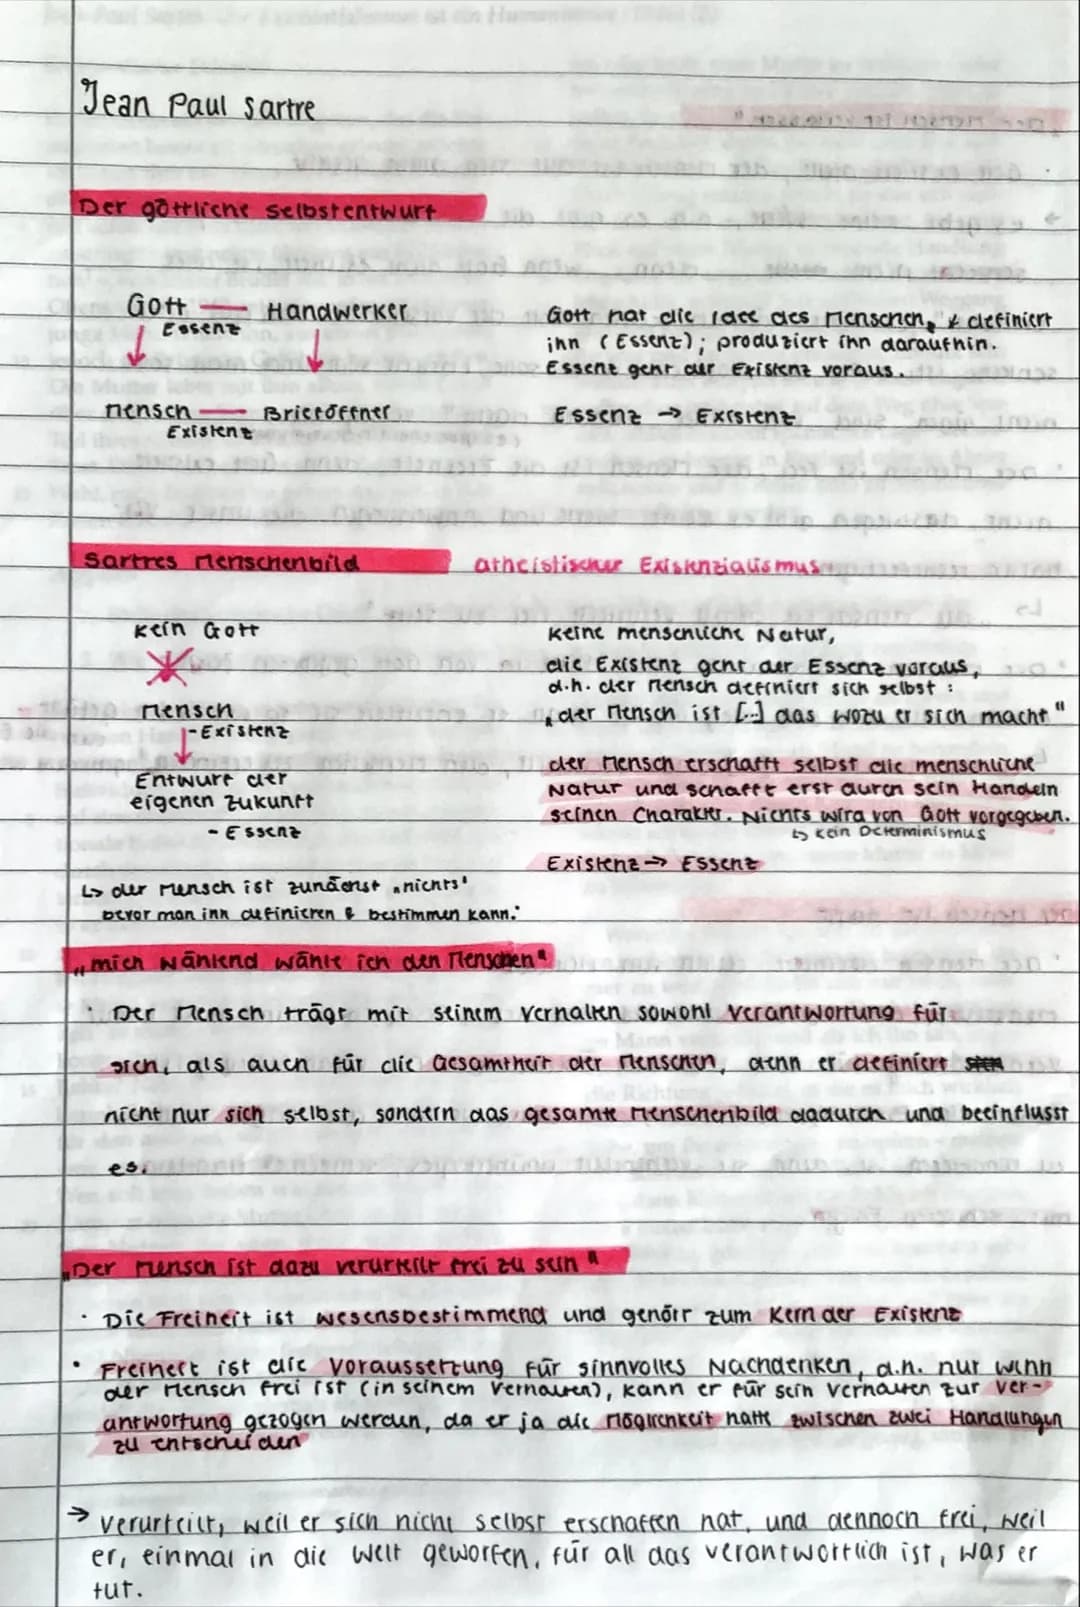 Jean Paul Sartre
Der göttliche Selbstentwurf
Gott — Handwerker
Essenz
Mensch — Brieföffner
Existenz
Gott hat die Idee des Menschen, & definiert
ihn (Essenz); produziert ihn daraufhin.
Essenz geht der Existenz voraus.
Essenz → Existenz
Sartres Menschenbild
atheistischer Existenzialismus
kein Gott
Mensch
- Existenz
Entwurf der
eigenen Zukunft
- Essenz
↳ der Mensch ist zunächst „nichts"
bevor man ihn definieren & bestimmen kann.
Keine menschliche Natur,
die Existenz geht der Essenz voraus,
d.h. der Mensch definiert sich selbst:
„der Mensch ist [...] das wozu er sich macht"
der Mensch erschafft selbst die menschliche
Natur und schafft erst durch sein Handeln
seinen Charakter. Nichts wird von Gott vorgegeben.
↳ kein Determinismus
Existenz → Essenz
„mich wählend wähle ich den Menschen"
· Der Mensch trägt mit seinem Verhalten sowohl Verantwortung für
sich, als auch für die Gesamtheit der Menschen, denn er definiert
nicht nur sich selbst, sondern das gesamte Menschenbild dadurch und beeinflusst
es.
„Der Mensch ist dazu verurteilt frei zu sein"
· Die Freiheit ist wesensbestimmend und gehört zum Kern der Existenz
· Freiheit ist die Voraussetzung für sinnvolles Nachdenken, d.h. nur wenn
der Mensch frei ist (in seinem Verhalten), kann er für sein Verhalten zur Ver-
antwortung gezogen werden, da er ja die Möglichkeit hatte zwischen zwei Handlungen
zu entscheiden
→ verurteilt, weil er sich nicht selbst erschaffen hat, und dennoch frei, weil
er, einmal in die Welt geworfen, für all das verantwortlich ist, was er
tut.